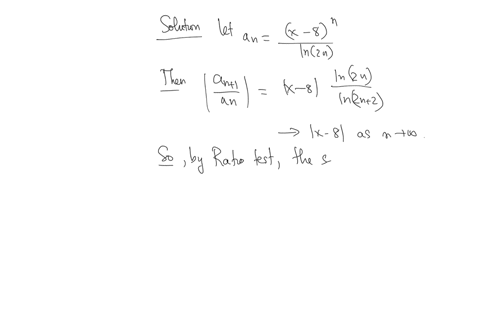 Solution let an = (x-8)^n / ln(2n)
Then |an+1 / an| = |x-8| ln(2n) / ln(2n+2)
→ |x-8| as n→∞.
So, by Ratio test, the s